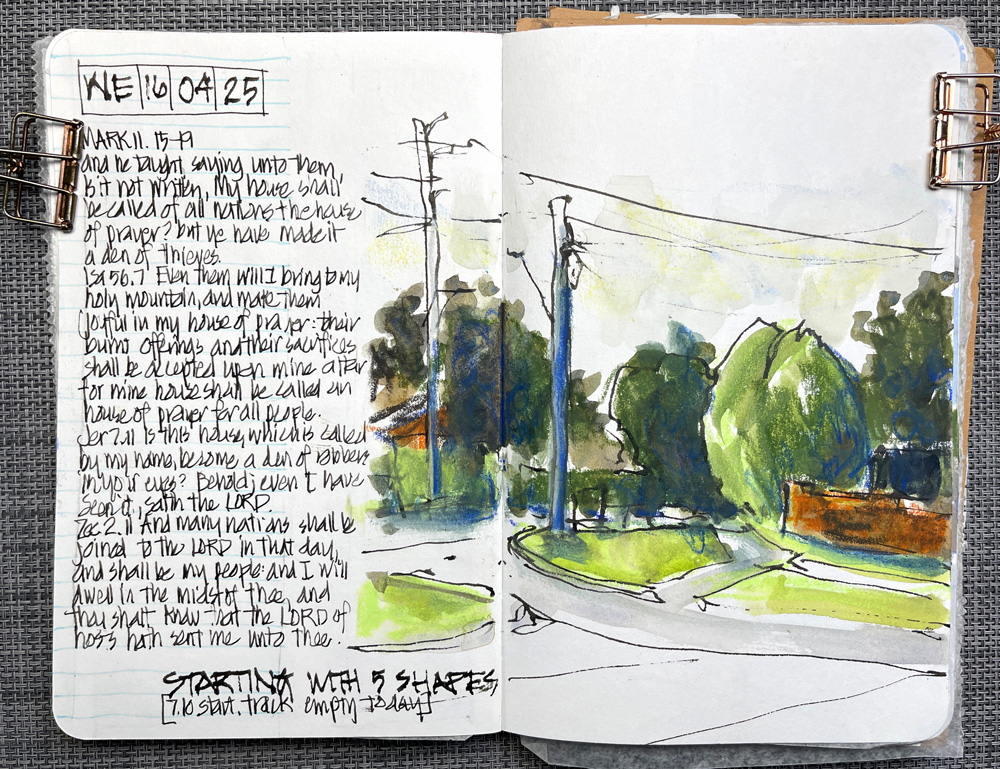 WE 16 04 25
MARK 11. 15-19
and he taught saying unto them
Is it not written, My house shall
be called of all nations the house
of prayer? but ye have made it
a den of thieves.
Isa 56.7 Even them will I bring to my
holy mountain, and make them
joyful in my house of prayer: their
burnt offerings and their sacrifices
shall be accepted upon mine altar
for mine house shall be called an
house of prayer for all people.
Jer 7.11 Is this house, which is called
by my name, become a den of robbers
in your eyes? Behold, even I have
seen it, saith the LORD.
Zec 2.11 And many nations shall be
joined to the LORD in that day,
and shall be my people: and I will
dwell in the midst of thee, and
thou shalt know that the LORD of
hosts hath sent me unto thee.
STARTING WITH 5 SHAPES
[7.10 start. track empty today]